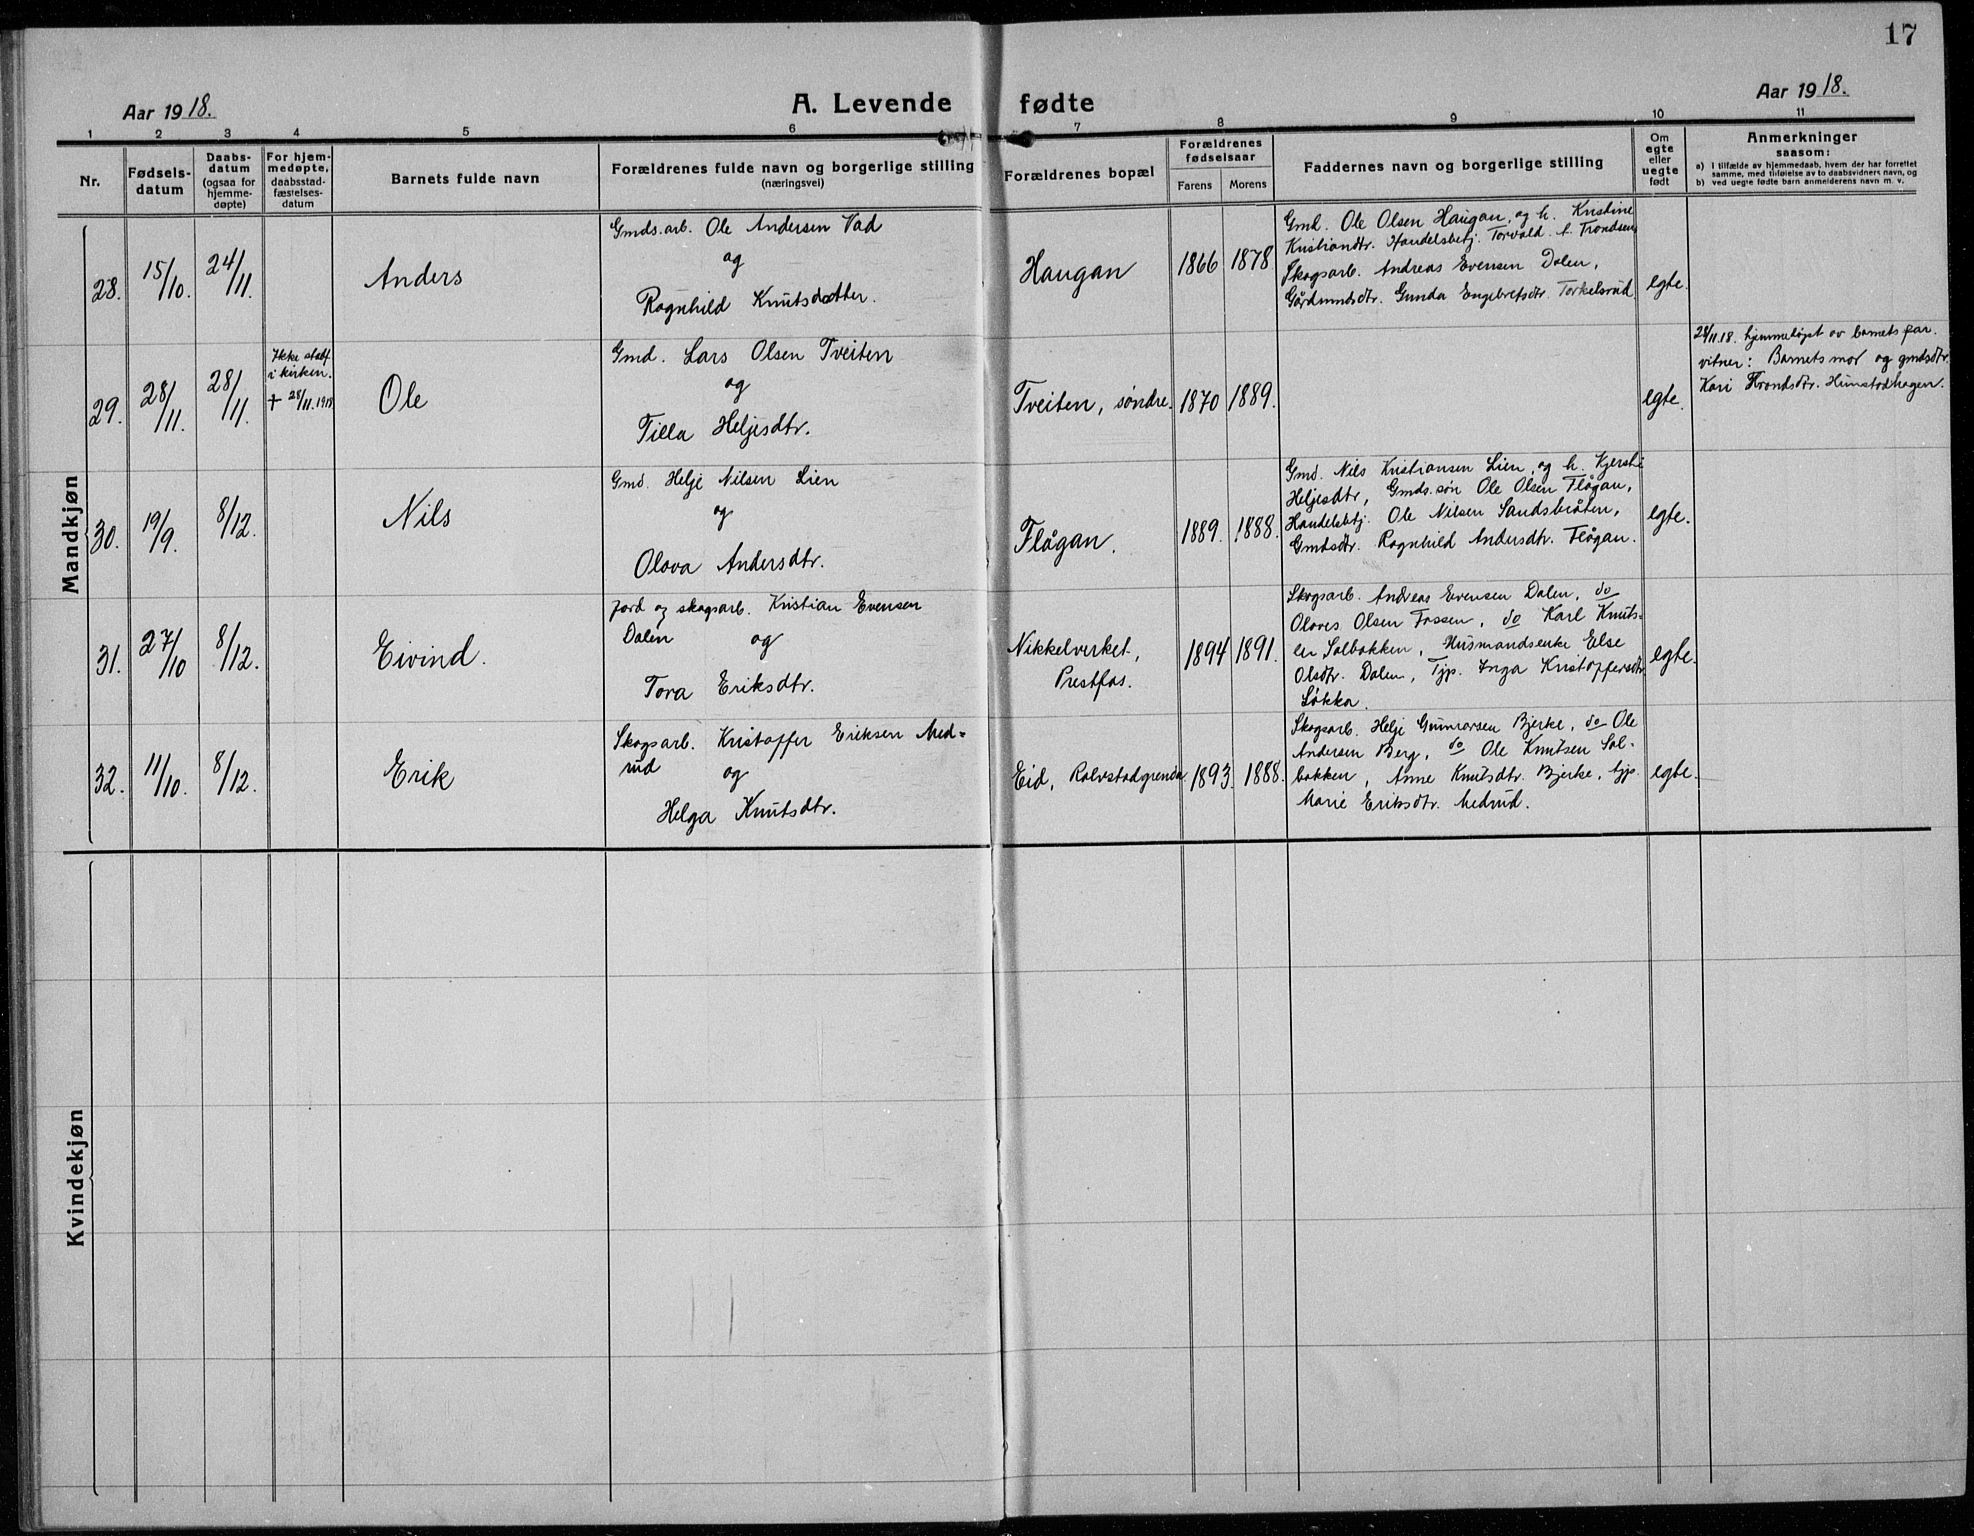 17
Aar 1918.
A. Levende fødte
Aar 1918.
1 2 3 4 5 6 7 8 9 10 11
Nr.
Fødsels-
datum
Daabs-
datum
(ogsaa for
hjemme-
døpte)
For hjem-
medøpte,
daabsstad-
fæstelses-
datum
Barnets fulde navn
Forældrenes fulde navn og borgerlige stilling
(næringsvei)
Forældrenes bopæl
Forældrenes
fødselsaar
Farens Morens
Faddernes navn og borgerlige stilling
Om
egte
eller
uegte
født
Anmerkninger
saasom:
a) i tilfælde av hjemmedaab, hvem der har forrettet
samme, med tilføielse av to daabsvidners navn, og
b) ved uegte fødte barn anmelderens navn m. v.
Mandkjøn
28.
15/10.
24/11.
Anders
Gmds.arb. Ole Andersen Vad
og
Ragnhild Knutsdatter.
Haugan
1866 1878
Gmd. Ole Olsen Haugan, og h. Kristine
Kristiandtr. Handelsbetj. Torvald Trondsen
Skogsarb. Andreas Evensen Dalen,
Gårdmandsdtr. Gunda Engebretsdtr. Torkelsrud
egte.
29.
28/11.
28/11.
Ikke stadf.
i kirken.
+ 28/11.1918
Ole
Gmd. Lars Olsen Tveiten
og
Tilla Heljesdtr.
Tveiten, søndre.
1870 1889.
egte.
28/11.18. hjemmeløpt av barnets far.
vitner: Barnets mor og gmdsdtr.
Kari Trondsdtr. Himstadhagen.
30.
19/9.
8/12.
Nils
Gmd. Helje Nilsen Lien
og
Olava Andersdtr.
Flågan.
1889. 1888.
Gmd. Nils Kristiansen Lien, og h. Kjersti
Heljesdtr, Gmds.søn Ole Olsen Flågan,
Handelsbetj. Ole Nilsen Sandsbråten,
Gmdsdtr. Ragnhild Andersdtr. Flågan.
egte.
31.
27/10
8/12.
Eivind.
Jord og skogsarb. Kristian Evensen
Dalen og
Tora Eriksdtr.
Nikkelverket,
Prestfos.
1894 1891.
Skogsarb. Andreas Evensen Dalen, do
Olaves Olsen Fossen, do Karl Knuts-
en Solbakken, Husmandsenke Else
Olsdtr. Dalen, Tjp. Inga Kristoffersdtr
Løkka.
egte.
32.
11/10.
8/12.
Erik
Skogsarb. Kristoffer Eriksen Med-
rud
og
Helga Knutsdtr.
Eid, Ralvstadgrenda.
1893. 1888.
Skogsarb. Helje Gunnarsen Bjerke, do Ole
Andersen Berg, do Ole Knutsen Sol-
bakken, Anne Knutsdtr. Bjerke, tjp.
Marie Eriksdtr. Medrud.
egte.
Kvindekjøn